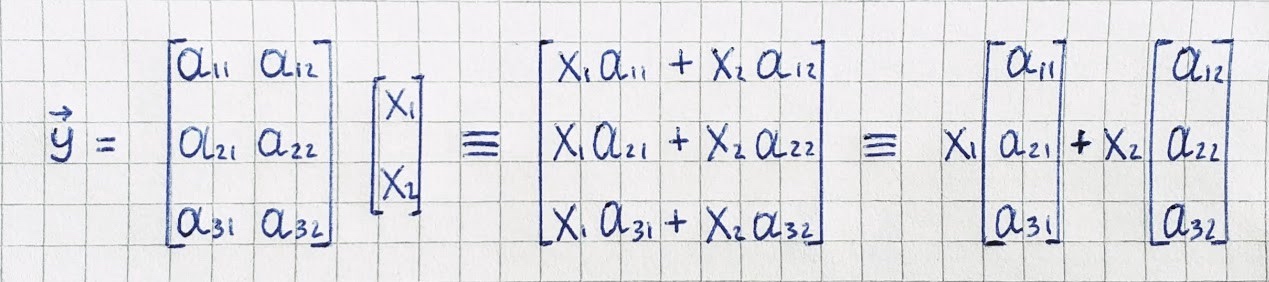 $\vec{y} = \begin{bmatrix} a_{11} & a_{12} \\ a_{21} & a_{22} \\ a_{31} & a_{32} \end{bmatrix} \begin{bmatrix} x_1 \\ x_2 \end{bmatrix} \equiv \begin{bmatrix} x_1 a_{11} + x_2 a_{12} \\ x_1 a_{21} + x_2 a_{22} \\ x_1 a_{31} + x_2 a_{32} \end{bmatrix} \equiv x_1 \begin{bmatrix} a_{11} \\ a_{21} \\ a_{31} \end{bmatrix} + x_2 \begin{bmatrix} a_{12} \\ a_{22} \\ a_{32} \end{bmatrix}$